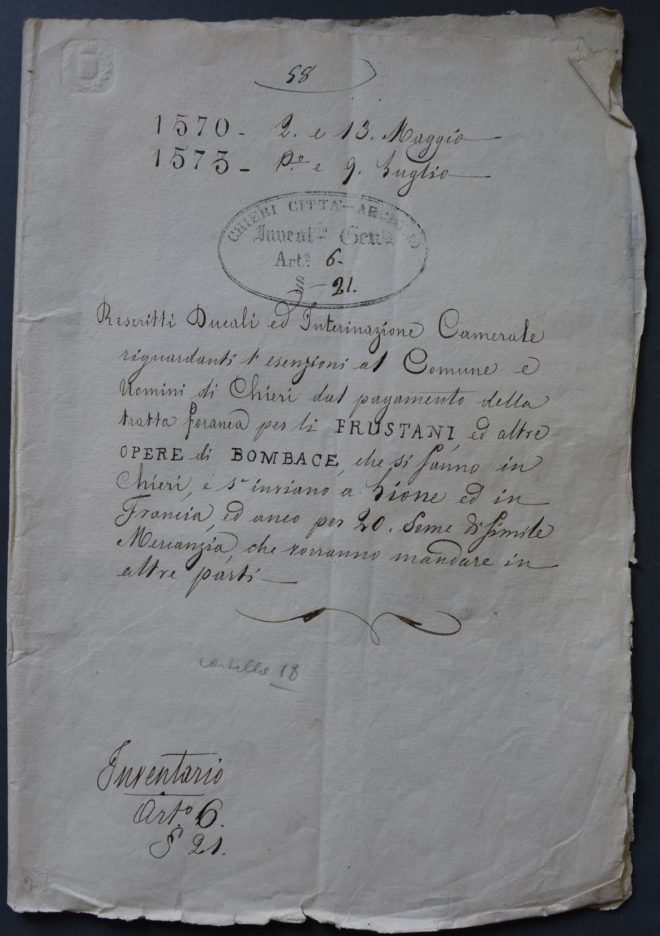 58
1570 - 2. e 13. Maggio
1573 - P.º e 9. Luglio
CHIERI CITTÀ - ARCHIVIO
Invent.rio Gen.le
Art.º 6.
§ - 21.
Rescritti Ducali ed Interinazione Camerale
riguardanti l'esenzioni al Comune e
Uomini di Chieri dal pagamento della
tratta foranea per li FRUSTANI, ed altre
OPERE di BOMBACE, che si fanno in
Chieri, e s'inviano a Lione ed in
Francia, ed anco per 20. Some di simile
Mercanzia, che vorranno mandare in
altre parti -
18
Inventario
Art.º 6.
§ 21.